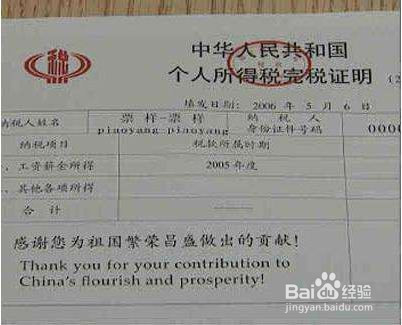 中华人民共和国
个人所得税完税证明
填发日期: 2006 年 5 月 6 日
纳税人姓名 票样-票样 piaoyang piaoyang 纳税人身份证件号码 0000
纳税项目 税款所属时期
、工资薪金所得 2005 年度
、其他各项所得
合 计
感谢您为祖国繁荣昌盛做出的贡献!
Thank you for your contribution to
China's flourish and prosperity!
Baidu 经验
jingyan.baidu.com